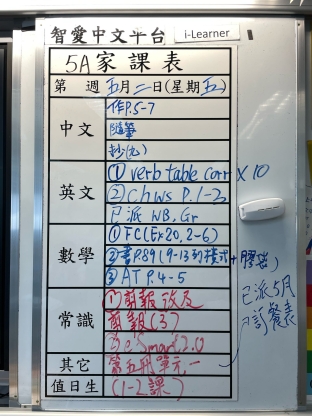 智愛中文平台 i-Learner
5A家課表
第 週 五月二日(星期五)
中文
作P.5-7
隨筆
抄(九)
英文
① verb table corr X 10
② Chws P.1-2
已派 WB, Gr
數學
① FC(Ex20, 2-6)
② 書P.89(9-13列横式+膠袋)
③ AT P.4-5
已派5月
訂餐表
常識
① 剪報
剪報(3)
e Smart 2.0
其它
第五冊單元一
值日生
(1-2課)